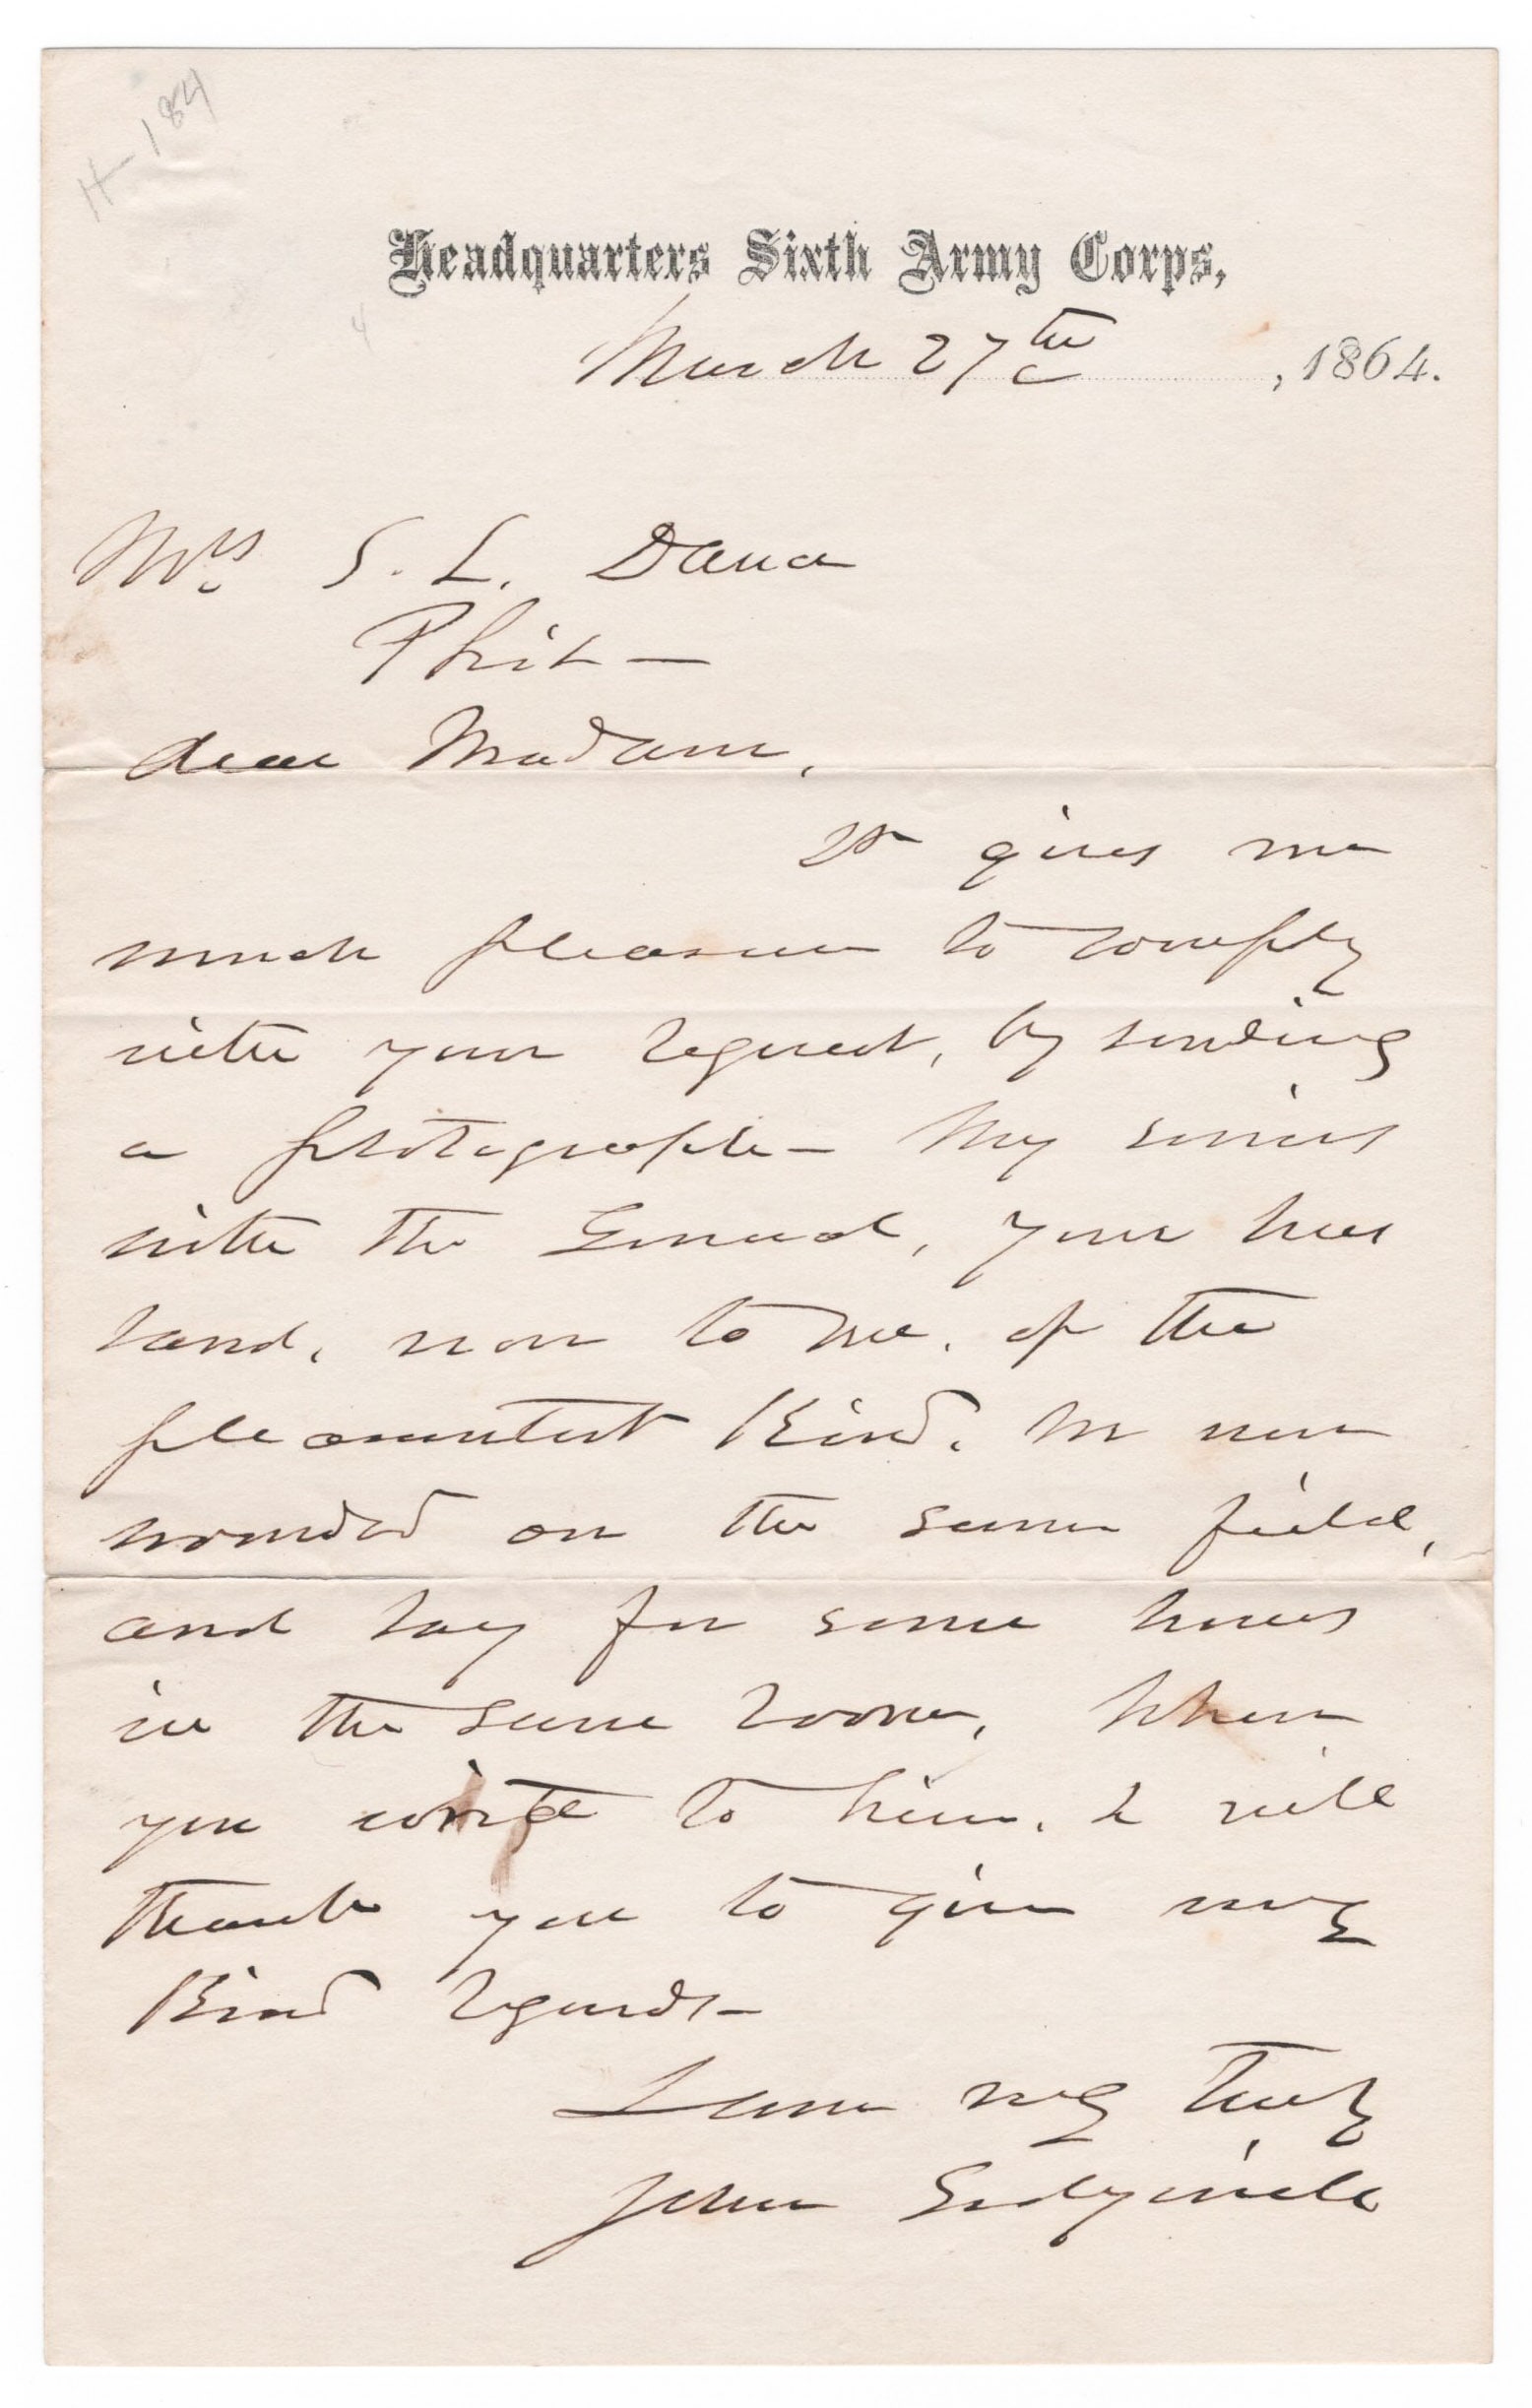 H-184
Headquarters Sixth Army Corps,
March 27th, 1864.
Mrs S. L. Dana
Phil-
dear Madam,
It gives me
much pleasure to comply
with your request, by sending
a photograph- My services
with the General, your hus
band, were to me, of the
pleasantest Kind. We were
wounded on the same field,
and lay for some hours
in the same room, When
you write to him, I will
thank you to give my
Kind regards-
I am very truly
John Sedgwick